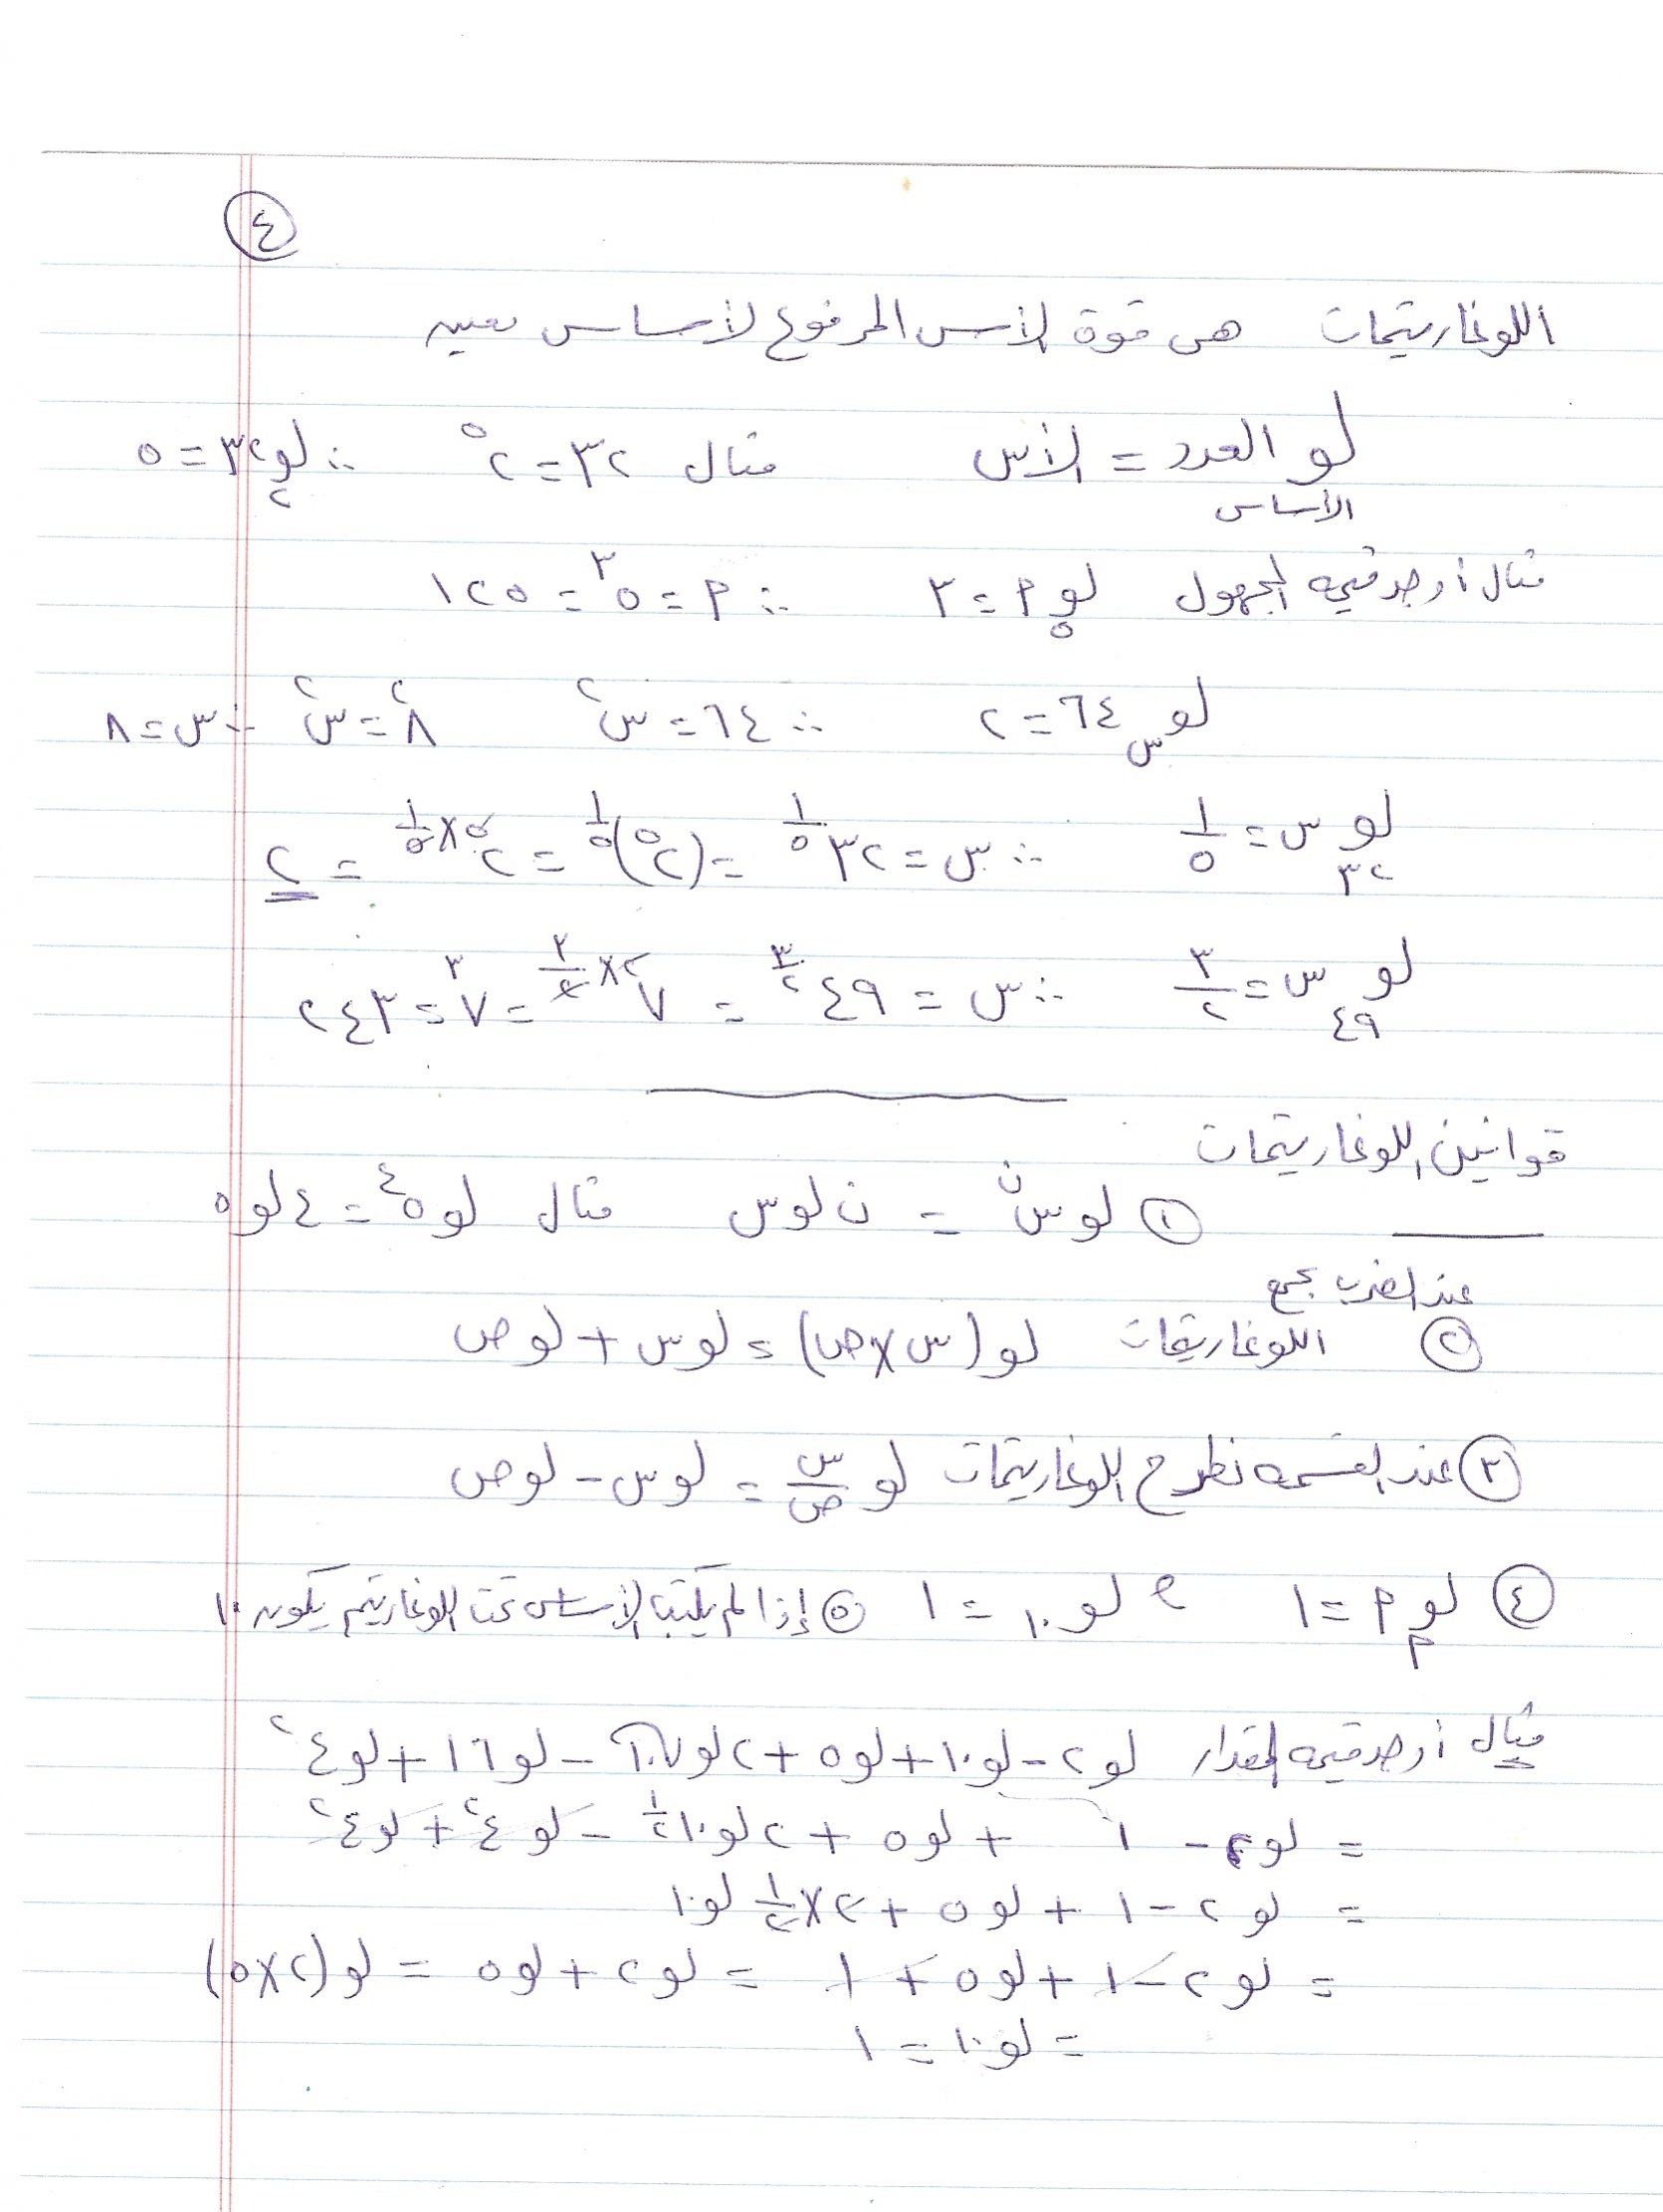 ٤
اللوغاريتمات هى قوة الأس المرفوع لأساس معين
لو العدد = الأس مثال ٣٢ = ٢^٥ ∴ لو_٢ ٣٢ = ٥
الأساس
مثال أوجد قيمة المجهول لو_٥ م = ٣ ∴ م = ٥^٣ = ١٢٥
لو_س ٦٤ = ٢ ∴ ٦٤ = س^٢ ٨^٢ = س^٢ ∴ س = ٨
لو_٣٢ س = ١/٥ ∴ س = ٣٢^(١/٥) = (٢^٥)^(١/٥) = ٢^(٥×١/٥) = ٢
لو_٤٩ س = ٣/٢ ∴ س = ٤٩^(٣/٢) = ٧^(٢×٣/٢) = ٧^٣ = ٢٤٣
قوانين اللوغاريتمات
① لو س^ن = ن لو س مثال لو ٥^٤ = ٤ لو ٥
عند الضرب نجمع
② اللوغاريتمات لو (س × ص) = لو س + لو ص
③ عند القسمة نطرح اللوغاريتمات لو س/ص = لو س - لو ص
④ لو_م م = ١ ، لو ١٠ = ١ ⑤ إذا لم يكتب الأساس تحت اللوغاريتم يكون ١٠
مثال أوجد قيمة المقدار لو ٢ - لو ١٠ + لو ٥ + ٢ لو √١٠ - لو ١٦ + لو ٤^٢
= لو ٢ - ١ + لو ٥ + ٢ لو ١٠^(١/٢) - لو ٤^٢ + لو ٤^٢
= لو ٢ - ١ + لو ٥ + ٢ × ١/٢ لو ١٠
= لو ٢ - ١ + لو ٥ + ١ = لو ٢ + لو ٥ = لو (٢ × ٥)
= لو ١٠ = ١